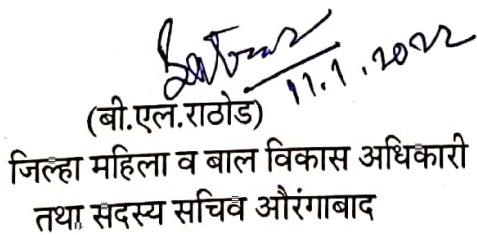 11.1.2022
(बी.एल.राठोड)
जिल्हा महिला व बाल विकास अधिकारी
तथा सदस्य सचिव औरंगाबाद